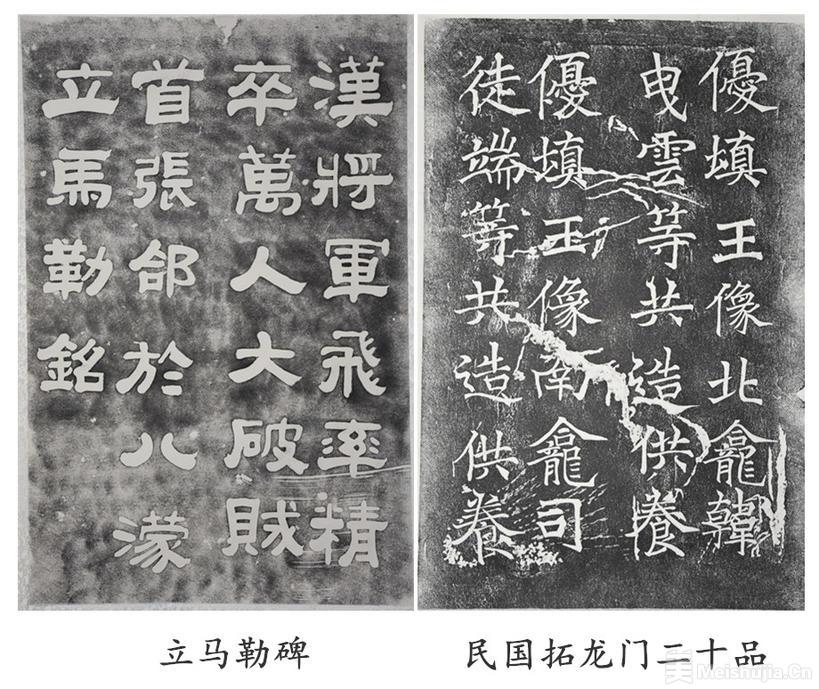 漢將軍飛率精
卒萬人大破賊
首張郃於八濛
立馬勒銘
優填王像北龕韓
曳雲等共造供養
優填王像南龕司
徒端等共造供養
立马勒碑
民国拓龙门二十品
美 Meishujia.Cn